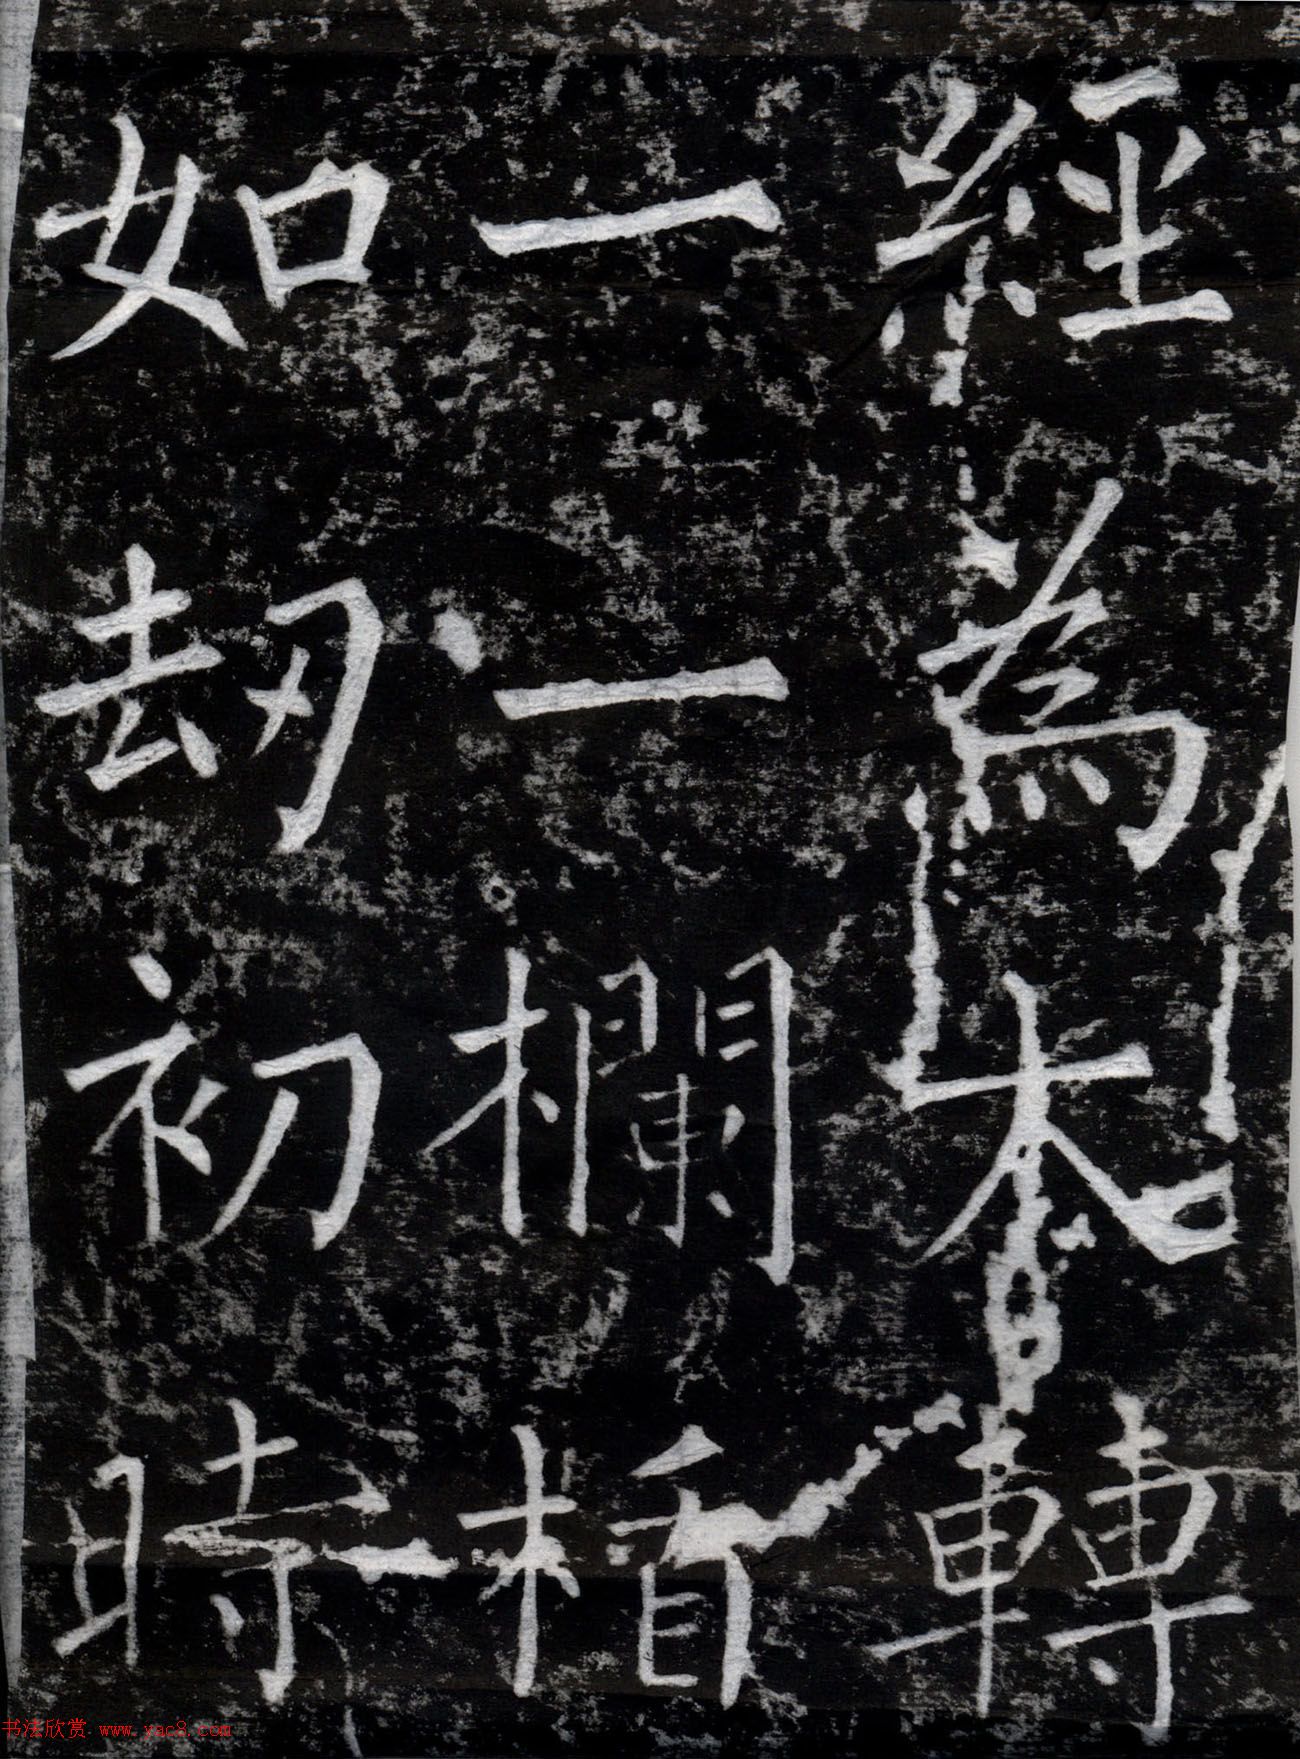 經為大轉
一一欄楯
如刼初時
书法欣赏 www.yac8.com